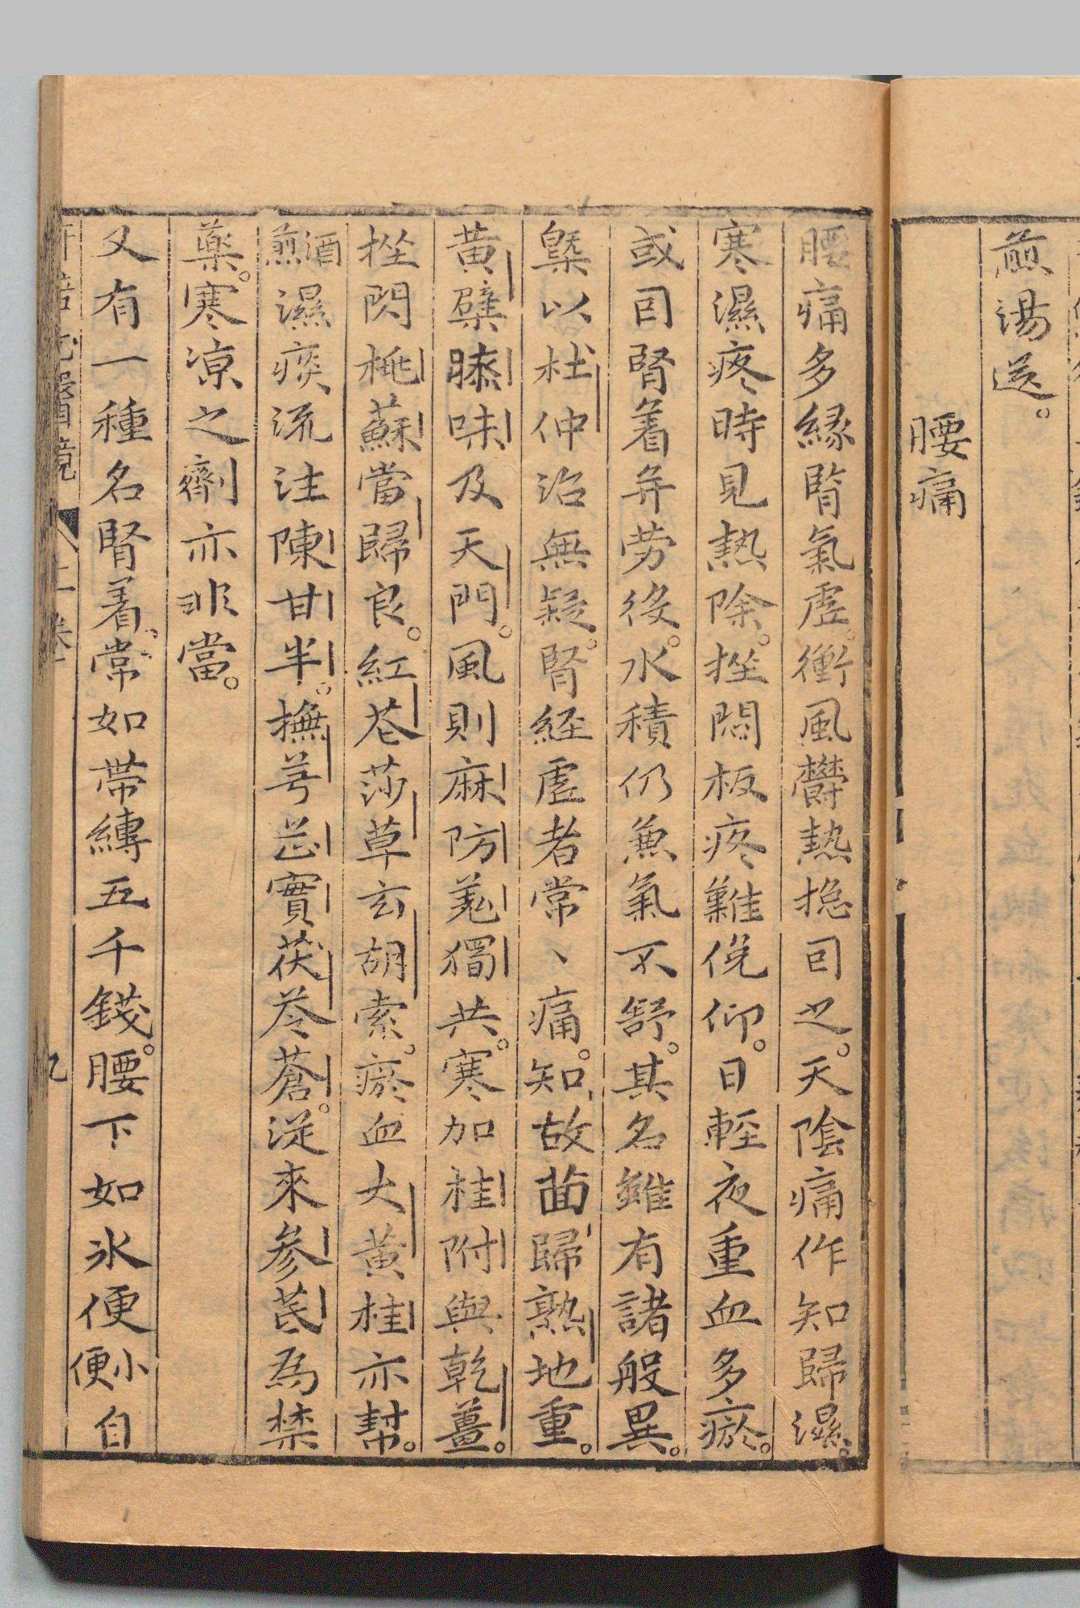 煎湯送。
腰痛
腰痛多緣腎氣虛。衝風欝熱揔因之。天陰痛作知歸濕。
寒濕疼時見熱除。挫悶板疼難俛仰。日輕夜重血多瘀。
或因腎着并劳役。水積仍兼氣不舒。其名雖有諸般異。
槩以杜仲治無疑。腎經虛者常丶痛。知故茴歸熟地重。
黃蘗膝味及天門。風則麻防羗獨共。寒加桂附與乾薑。
挫閃桃蘇當歸良。紅花莎草玄胡索。瘀血大黃桂亦幇。
酒煎濕痰流注陳甘半。撫芎芷實茯苓蒼。從來參芪為禁
藥。寒凉之劑亦非當。
又有一種名腎着。常如帶縳五千錢。腰下如氷便小便自
上卷 九